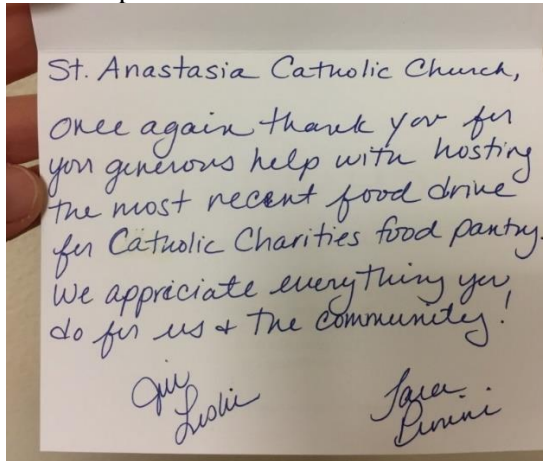 St. Anastasia Catholic Church,
Once again thank you for
your generous help with hosting
the most recent food drive
for Catholic Charities food pantry.
We appreciate everything you
do for us & the community!
Leslie